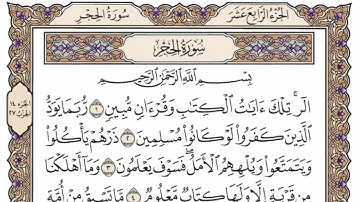 الجزء الرابع عشر
سورة الحجر
سورة الحجر
بِسْمِ اللَّهِ الرَّحْمَٰنِ الرَّحِيمِ
الٓرۚ تِلۡكَ ءَايَٰتُ ٱلۡكِتَٰبِ وَقُرۡءَانٖ مُّبِينٖ ١ رُّبَمَا يَوَدُّ
ٱلَّذِينَ كَفَرُواْ لَوۡ كَانُواْ مُسۡلِمِينَ ٢ ذَرۡهُمۡ يَأۡكُلُواْ
وَيَتَمَتَّعُواْ وَيُلۡهِهِمُ ٱلۡأَمَلُۖ فَسَوۡفَ يَعۡلَمُونَ ٣ وَمَآ أَهۡلَكۡنَا
مِن قَرۡيَةٍ إِلَّا وَلَهَا كِتَابٞ مَّعۡلُومٞ ٤ مَّا تَسۡبِقُ مِنۡ أُمَّةٍ
الجزء ١٤
الحزب ٢٧